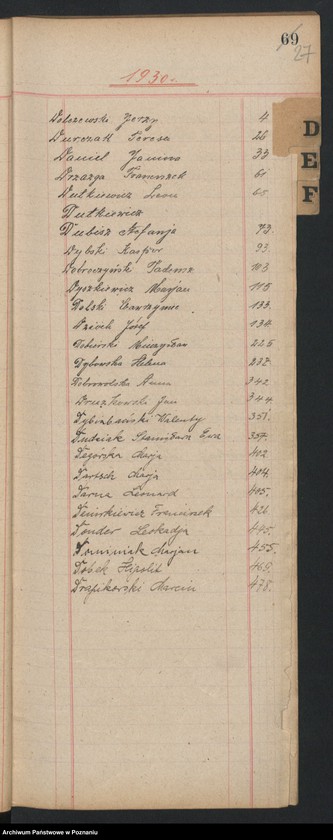 69
27
1930.
D
E
F
Dolszewski Jerzy 4
Durczak Teresa 26
Daniel Janina 33
Drzazga Franciszek 61
Dutkiewicz Leon 65
Dutkiewicz
Dubisz Stefanja 73.
Dybski Kasper 93.
Dobroczyński Tadeusz 103
Dyszkiewicz Marjan 115
Dolski Wawrzyniec 133.
Józef 134.
Mieczysław 225
Dybowska Helena 237.
Dobrowolska Anna 342
Druszkowski Jan 344
Walenty 351.
Dudziak Stanisława Ewa 357.
Degórska Marja 402
Dartsch Marja 404.
Darna Leonard 405.
Franciszek 421
Donder Leokadja 445.
Dominiak Marjan 455.
Dobek Hipolit 469.
Drapikowski Marcin 478.
Archiwum Państwowe w Poznaniu